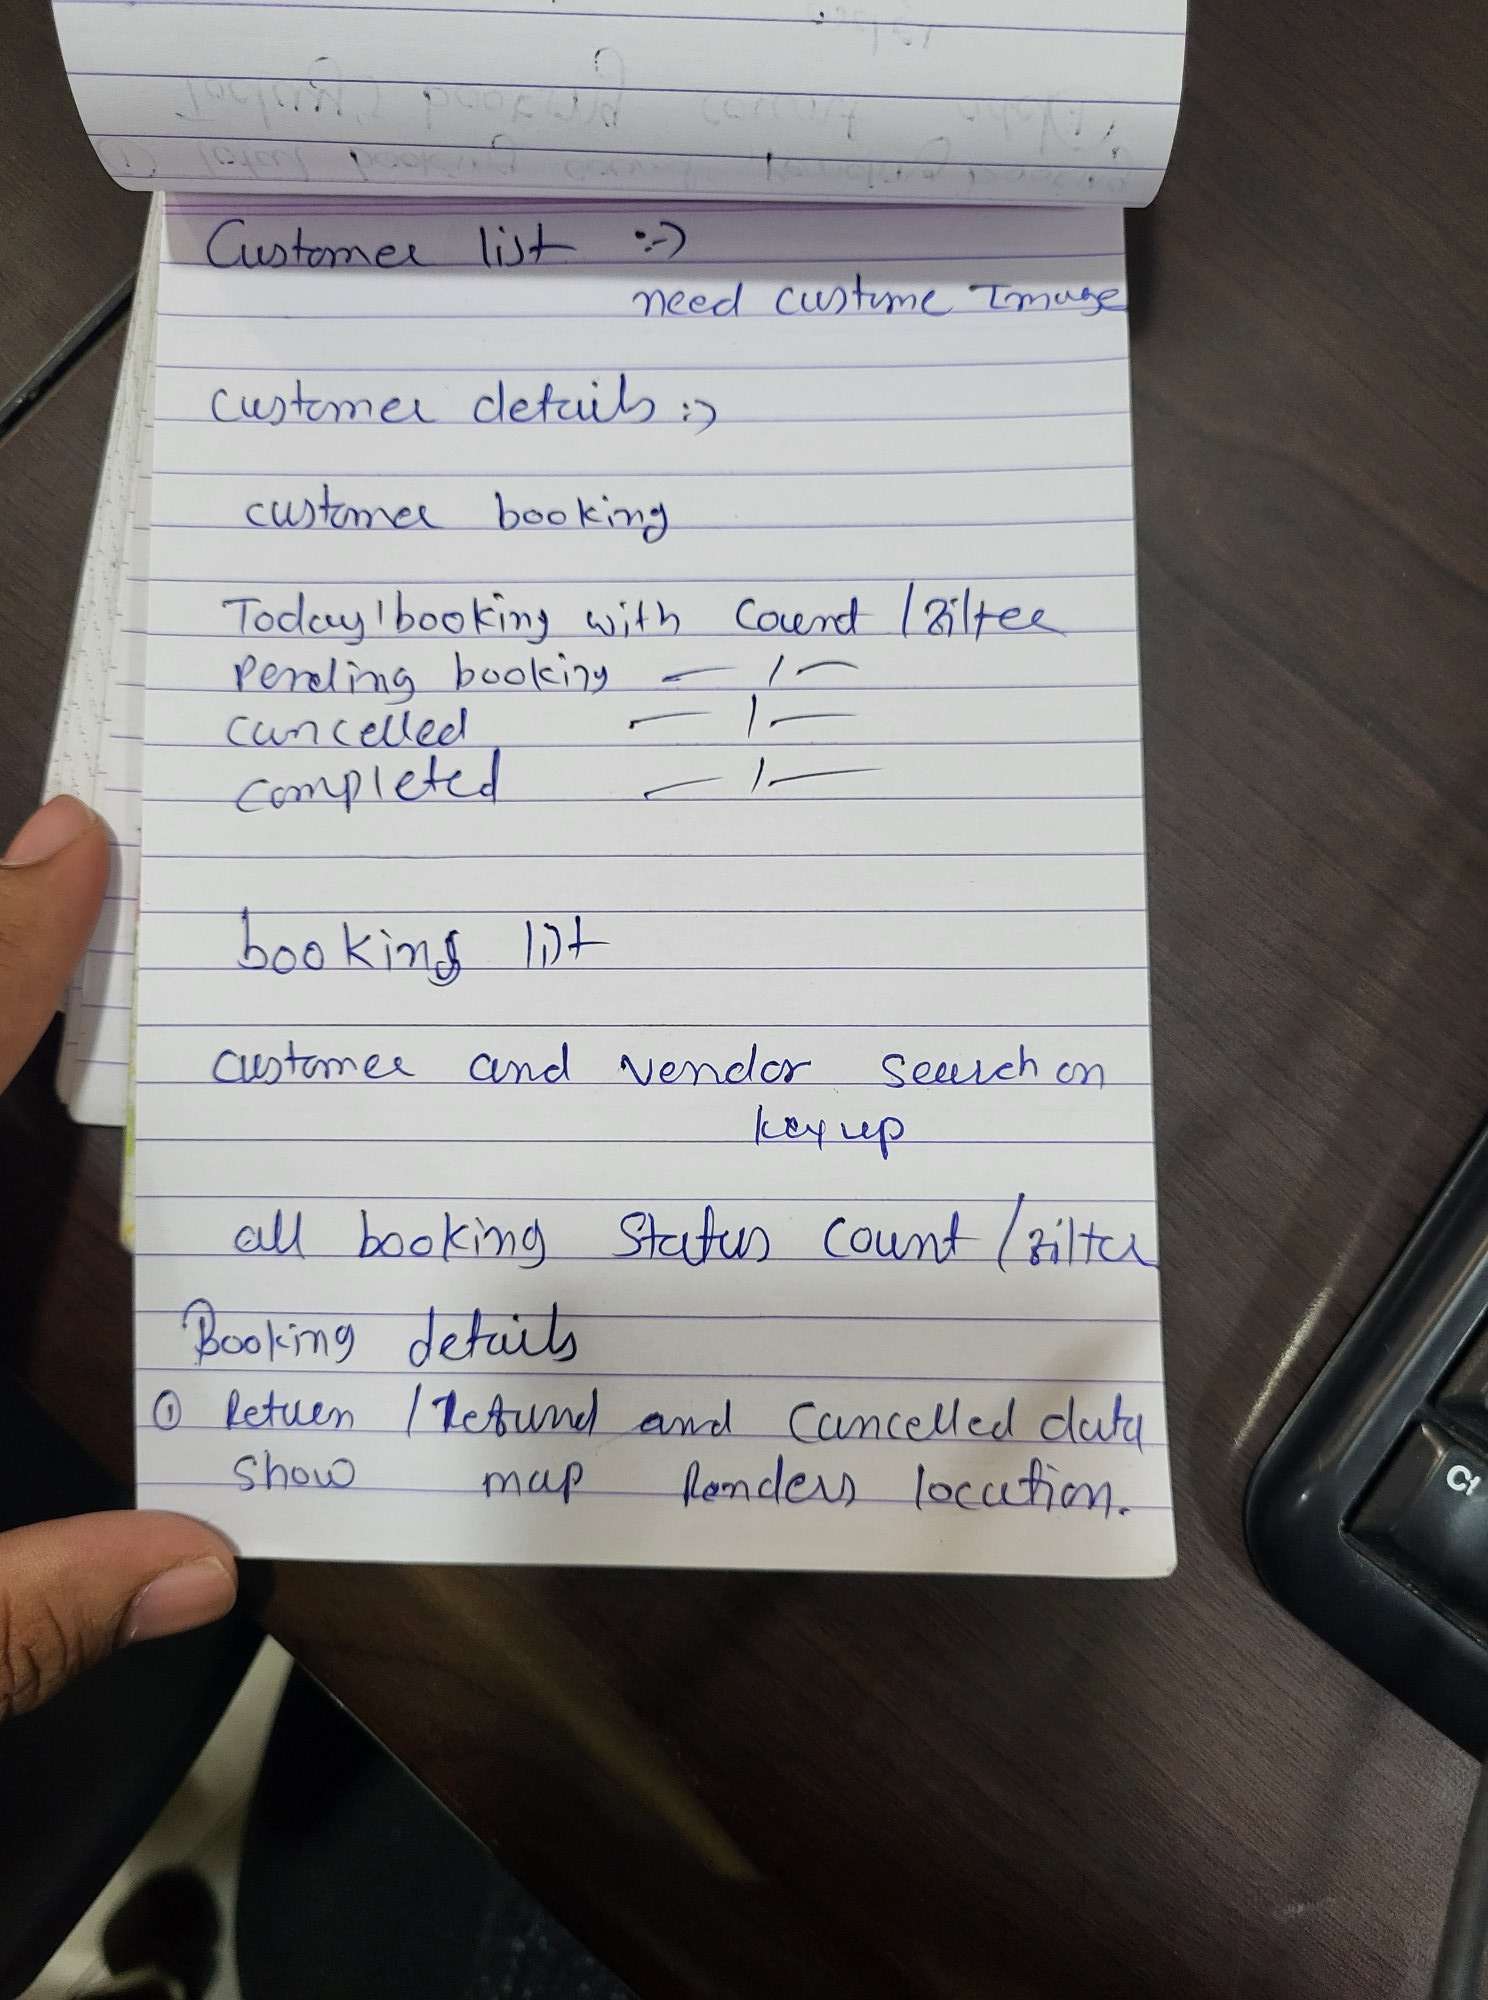 Customer list :->
need custome Image
customer details :->
customer booking
Today's booking with Count / Filter
Pending booking — / —
cancelled — / —
completed — / —
booking list
customer and vendor search on
key up
all booking Status count / Filter
Booking details
① Return / Refund and Cancelled data
show map location.
Ct